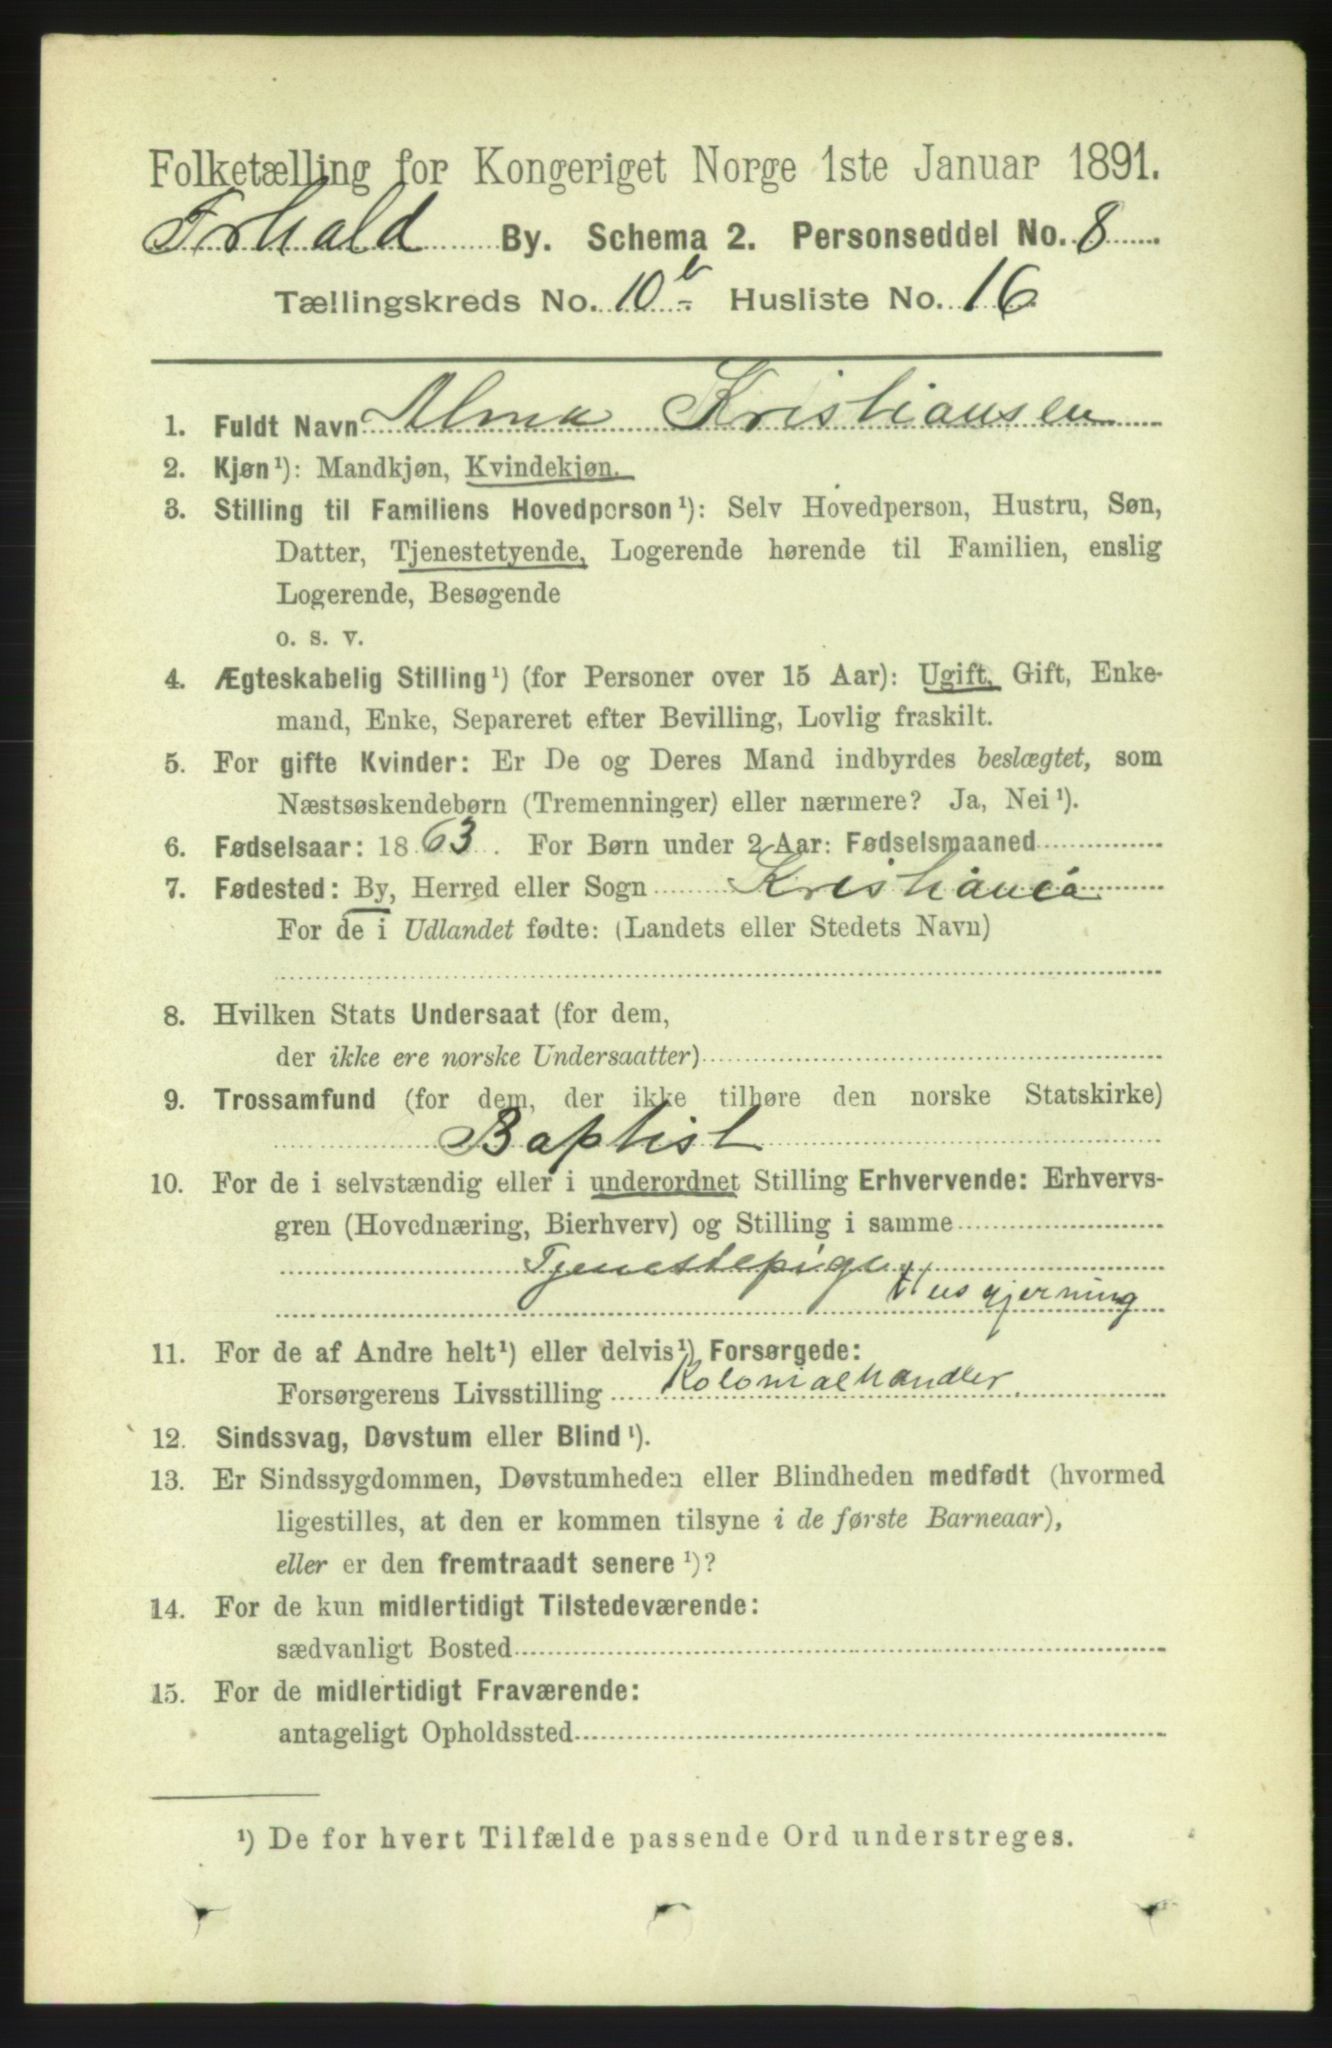 Folketælling for Kongeriget Norge 1ste Januar 1891.
Frhald By. Schema 2. Personseddel No. 8
Tællingskreds No. 10 Husliste No. 16
1. Fuldt Navn Alma Kristiansen
2. Kjøn¹): Mandkjøn, Kvindekjøn.
3. Stilling til Familiens Hovedperson¹): Selv Hovedperson, Hustru, Søn,
Datter, Tjenestetyende, Logerende hørende til Familien, enslig
Logerende, Besøgende
o. s. v.
4. Ægteskabelig Stilling¹) (for Personer over 15 Aar): Ugift, Gift, Enke-
mand, Enke, Separeret efter Bevilling, Lovlig fraskilt.
5. For gifte Kvinder: Er De og Deres Mand indbyrdes beslægtet, som
Næstsøskendebørn (Tremenninger) eller nærmere? Ja, Nei¹).
6. Fødselsaar: 1863. For Børn under 2 Aar: Fødselsmaaned
7. Fødested: By, Herred eller Sogn Kristiania
For de i Udlandet fødte: (Landets eller Stedets Navn)
8. Hvilken Stats Undersaat (for dem,
der ikke ere norske Undersaatter)
9. Trossamfund (for dem, der ikke tilhøre den norske Statskirke)
Baptist
10. For de i selvstændig eller i underordnet Stilling Erhvervende: Erhvervs-
gren (Hovednæring, Bierhverv) og Stilling i samme
Tjenestepige
Husgjerning
11. For de af Andre helt¹) eller delvis¹) Forsørgede:
Forsørgerens Livsstilling Kolonialhandler.
12. Sindssvag, Døvstum eller Blind¹).
13. Er Sindssygdommen, Døvstumheden eller Blindheden medfødt (hvormed
ligestilles, at den er kommen tilsyne i de første Barneaar),
eller er den fremtraadt senere¹)?
14. For de kun midlertidigt Tilstedeværende:
sædvanligt Bosted
15. For de midlertidigt Fraværende:
antageligt Opholdssted
¹) De for hvert Tilfælde passende Ord understreges.